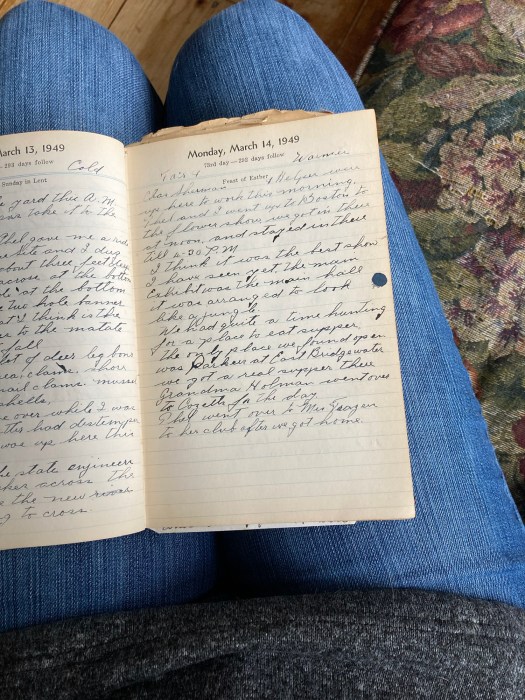 March 13, 1949
293 days follow
Cold
Sunday in Lent
yard this A.M.
take it to the
Ethel gave me a
site and I dug
about three feet
across at the bottom
at the bottom
two hole banner
I think is the
to the
fall
lot of deer leg bone
clams. Short
snail clams. mussel
shells.
over while I was
had distemper
was up here this
the state engineer
across the
the new road
to cross.
Monday, March 14, 1949
73rd day—292 days follow
Fair & Warmer
Feast of Esther
Chas Sherman & Helper were
up here to work this morning.
Ethel and I went up to Boston to
the flower show, we got in there
at noon, and stayed in there
till 5:30 P.M.
I think it was the best show
I have seen yet, the main
Exhibit was the main hall
it was arranged to look
like a jungle.
We had quite a time hunting
for a place to eat supper,
the only place we found open
was Parkers at East Bridgewater
we got a real supper there
Grandma Holman went over
to Cozette for the day
Ethel went over to Mrs
to her club after we got home.